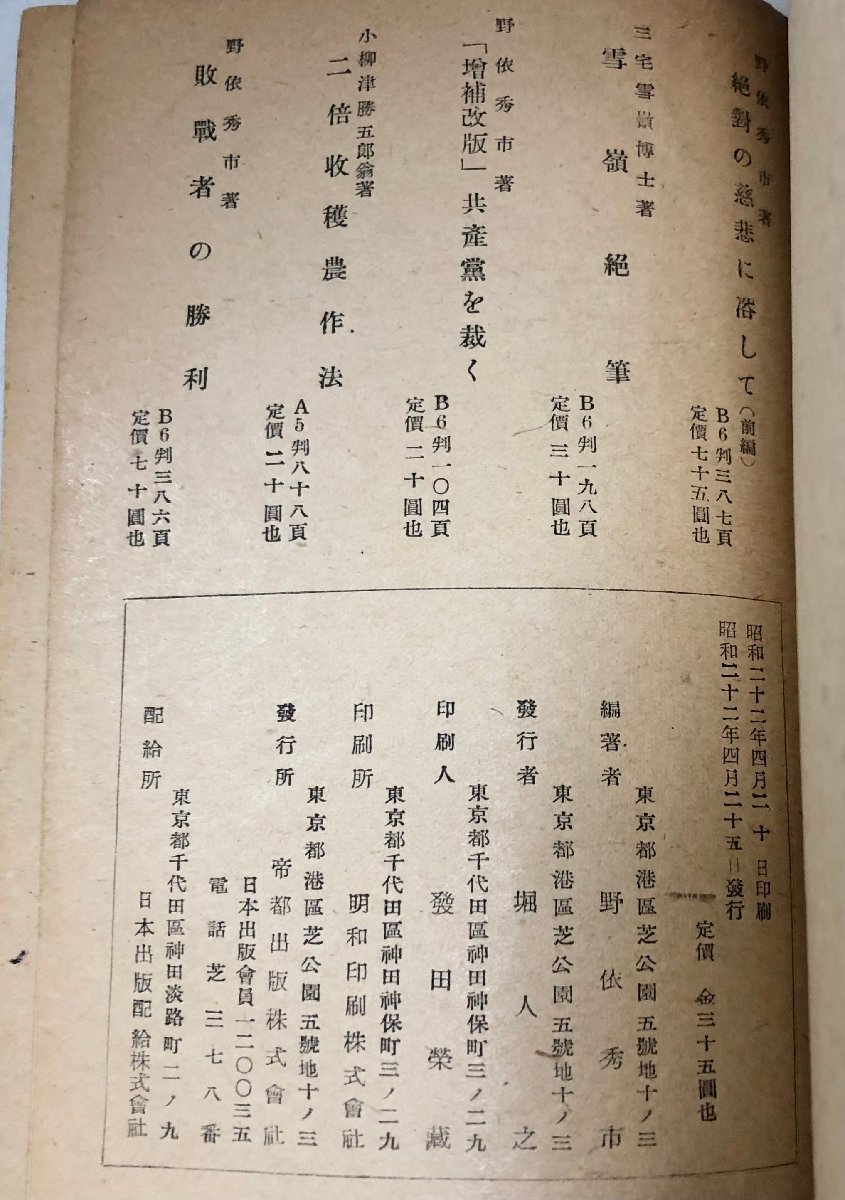 野依秀市著
絕對の慈悲に浴して（前編）
B6判三八七頁
定價七十五圓也
三宅雪嶺博士著
雪嶺絕筆
B6判一九八頁
定價三十圓也
野依秀市著
「增補改版」共產黨を裁く
B6判一〇四頁
定價二十圓也
小柳津勝五郎翁著
二倍收穫農作法
A5判八十八頁
定價二十圓也
野依秀市著
敗戰者の勝利
B6判三八六頁
定價七十圓也
昭和二十二年四月二十日印刷
昭和二十二年四月二十五日發行
定價 金三十五圓也
東京都港區芝公園五號地十ノ三
編著者 野依秀市
東京都港區芝公園五號地十ノ三
發行者 堀人之
東京都千代田區神田神保町三ノ二九
印刷人 發田榮藏
東京都千代田區神田神保町三ノ二九
印刷所 明和印刷株式會社
東京都港區芝公園五號地十ノ三
發行所 帝都出版株式會社
日本出版會員一二〇〇三五
電話芝三七八番
東京都千代田區神田淡路町二ノ九
配給所 日本出版配給株式會社